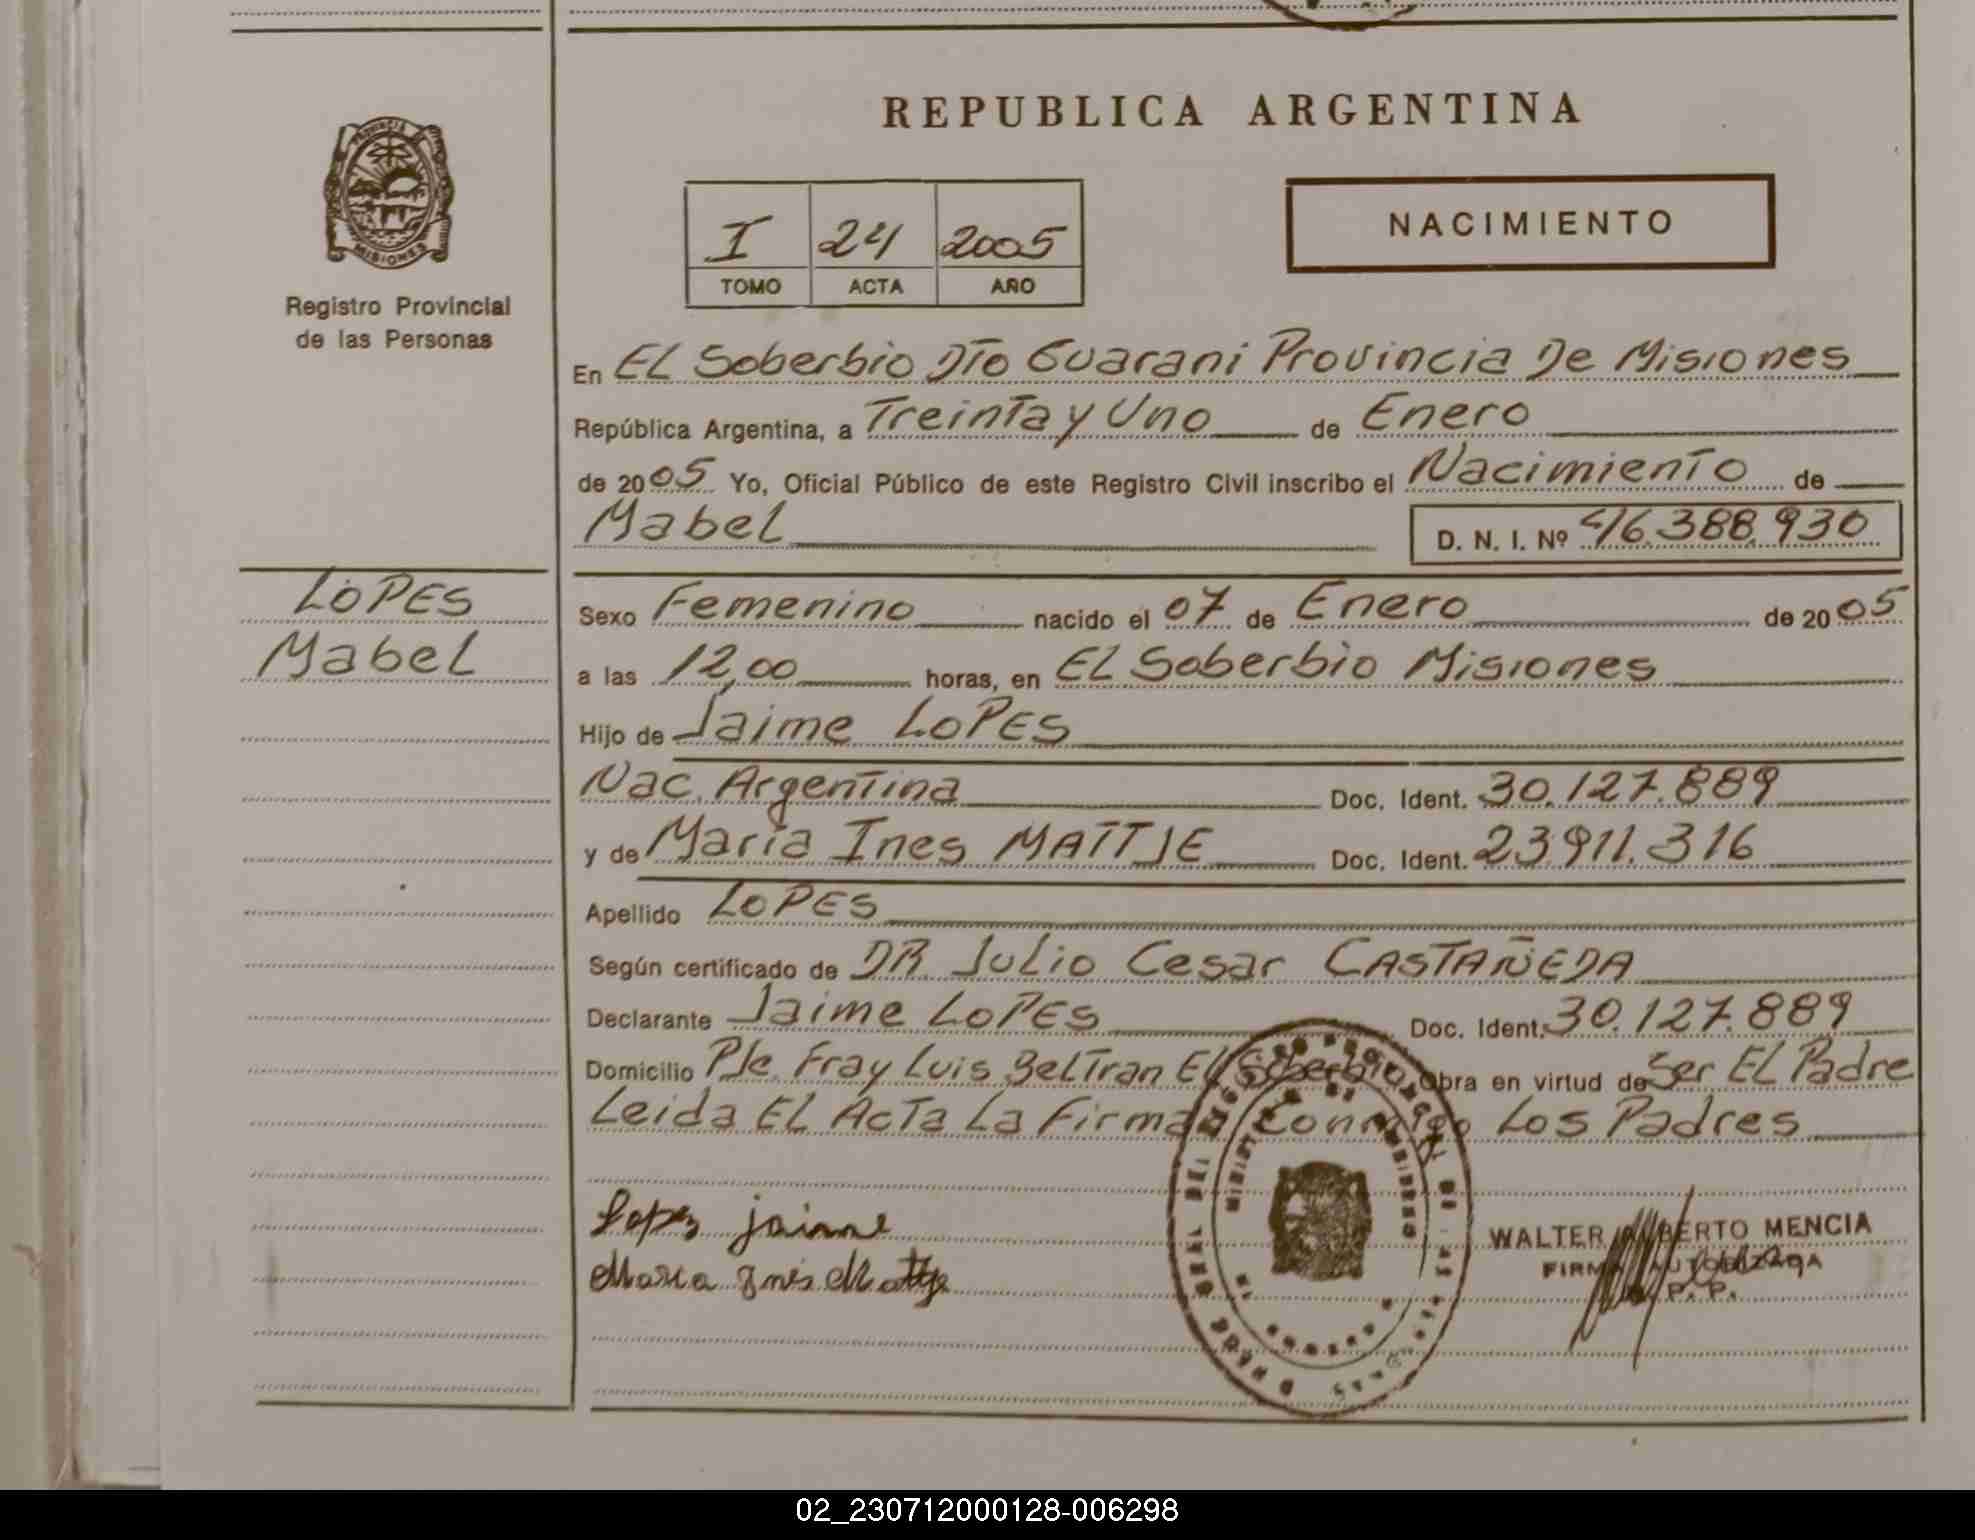 REPUBLICA ARGENTINA
PROVINCIA DE
MISIONES
Registro Provincial
de las Personas
I 24 2005
TOMO ACTA AÑO
NACIMIENTO
En EL Soberbio DTo Guarani Provincia De Misiones
República Argentina, a Treinta y Uno de Enero
de 2005 Yo, Oficial Público de este Registro Civil inscribo el Nacimiento de
Mabel D. N. I. Nº 46.388.930
LOPES
Mabel
Sexo Femenino nacido el 07 de Enero de 2005
a las 12,00 horas, en EL Soberbio Misiones
Hijo de Jaime LOPES
Nac. Argentina Doc. Ident. 30.127.889
y de María Ines MATTJE Doc. Ident. 23.911.316
Apellido LOPES
Según certificado de DR Julio Cesar CASTAÑEDA
Declarante Jaime LOPES Doc. Ident. 30.127.889
Domicilio Pje Fray Luis Beltran El Soberbio Obra en virtud de Ser EL Padre
Leida EL Acta La Firman Conmigo Los Padres
Lopes jaime
Maria Ynes Mattje
WALTER ALBERTO MENCIA
FIRMA AUTORIZADA
P. P.
02_230712000128-006298